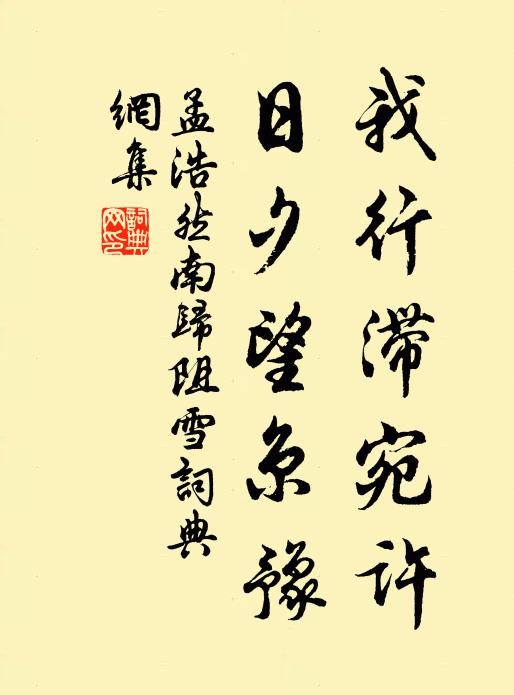 我行滞宛许
日夕望京豫
孟浩然南歸阻雪詞典
網集
詞典網印